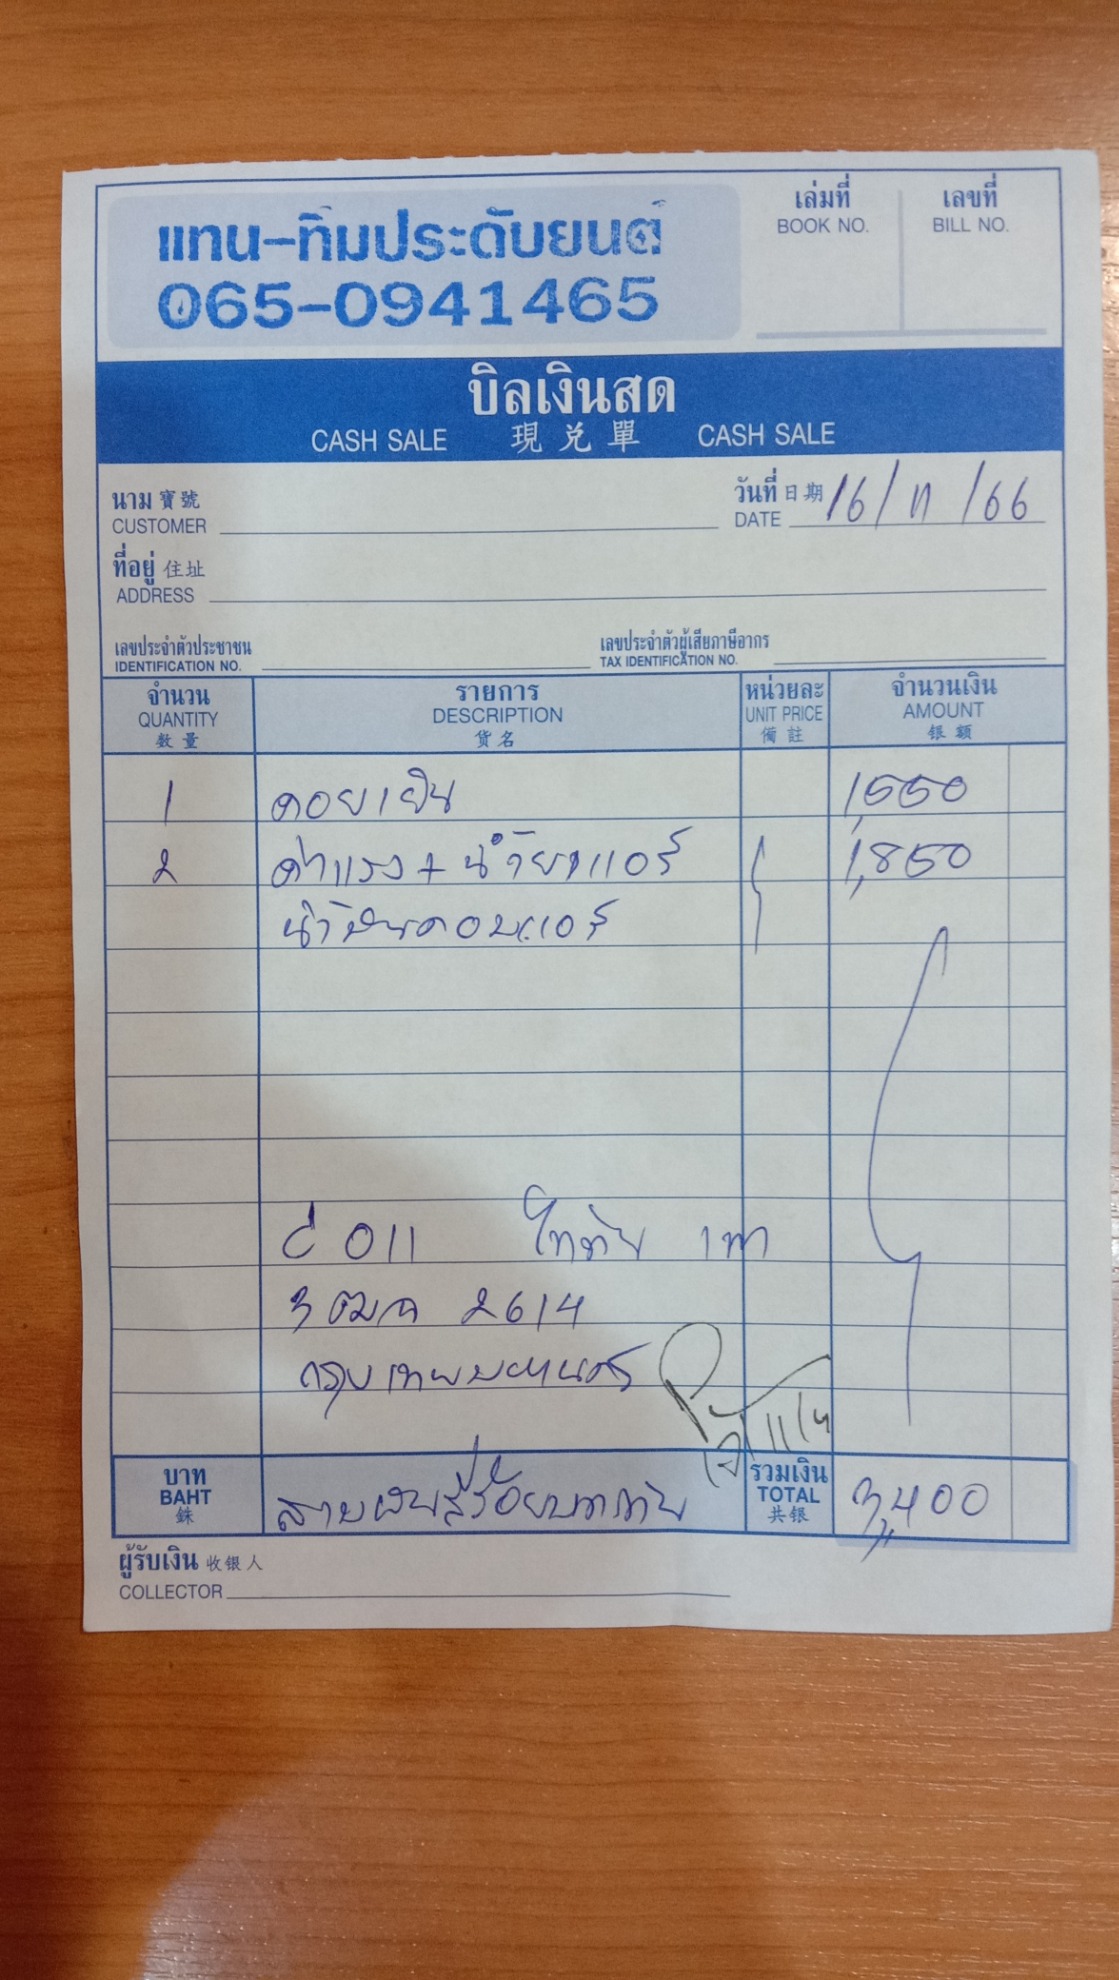 แทน-ทิมประดับยนต์
065-0941465
เล่มที่
BOOK NO.
เลขที่
BILL NO.
บิลเงินสด
CASH SALE 現兑單 CASH SALE
นาม 寶號
CUSTOMER
วันที่ 日期 16/11/66
DATE
ที่อยู่ 住址
ADDRESS
เลขประจำตัวประชาชน
IDENTIFICATION NO.
เลขประจำตัวผู้เสียภาษีอากร
TAX IDENTIFICATION NO.
จำนวน
QUANTITY
数量
รายการ
DESCRIPTION
货名
หน่วยละ
UNIT PRICE
備註
จำนวนเงิน
AMOUNT
银额
1 คอยเย็น 1,550
2 ค่าแรง + น้ำยาแอร์ 1,850
น้ำมันคอมแอร์
011 เทา
3 ฒค 2614
กรุงเทพมหานคร
บาท
BAHT
銖
สามพันสี่ร้อยบาทถ้วน
รวมเงิน
TOTAL
共银
3,400
ผู้รับเงิน 收银人
COLLECTOR